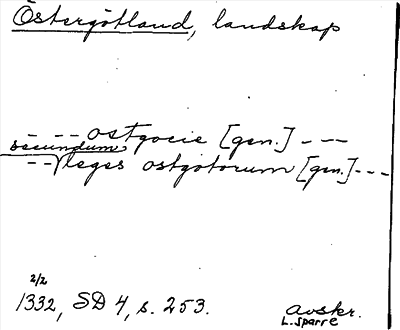 Östergötland, landskap
- - - ostgocie [gen.] - - -
secundum
- - leges ostgotorum [gen.] - - -
2/2
1332, SD 4, s. 253.
avskr.
L. Sparre